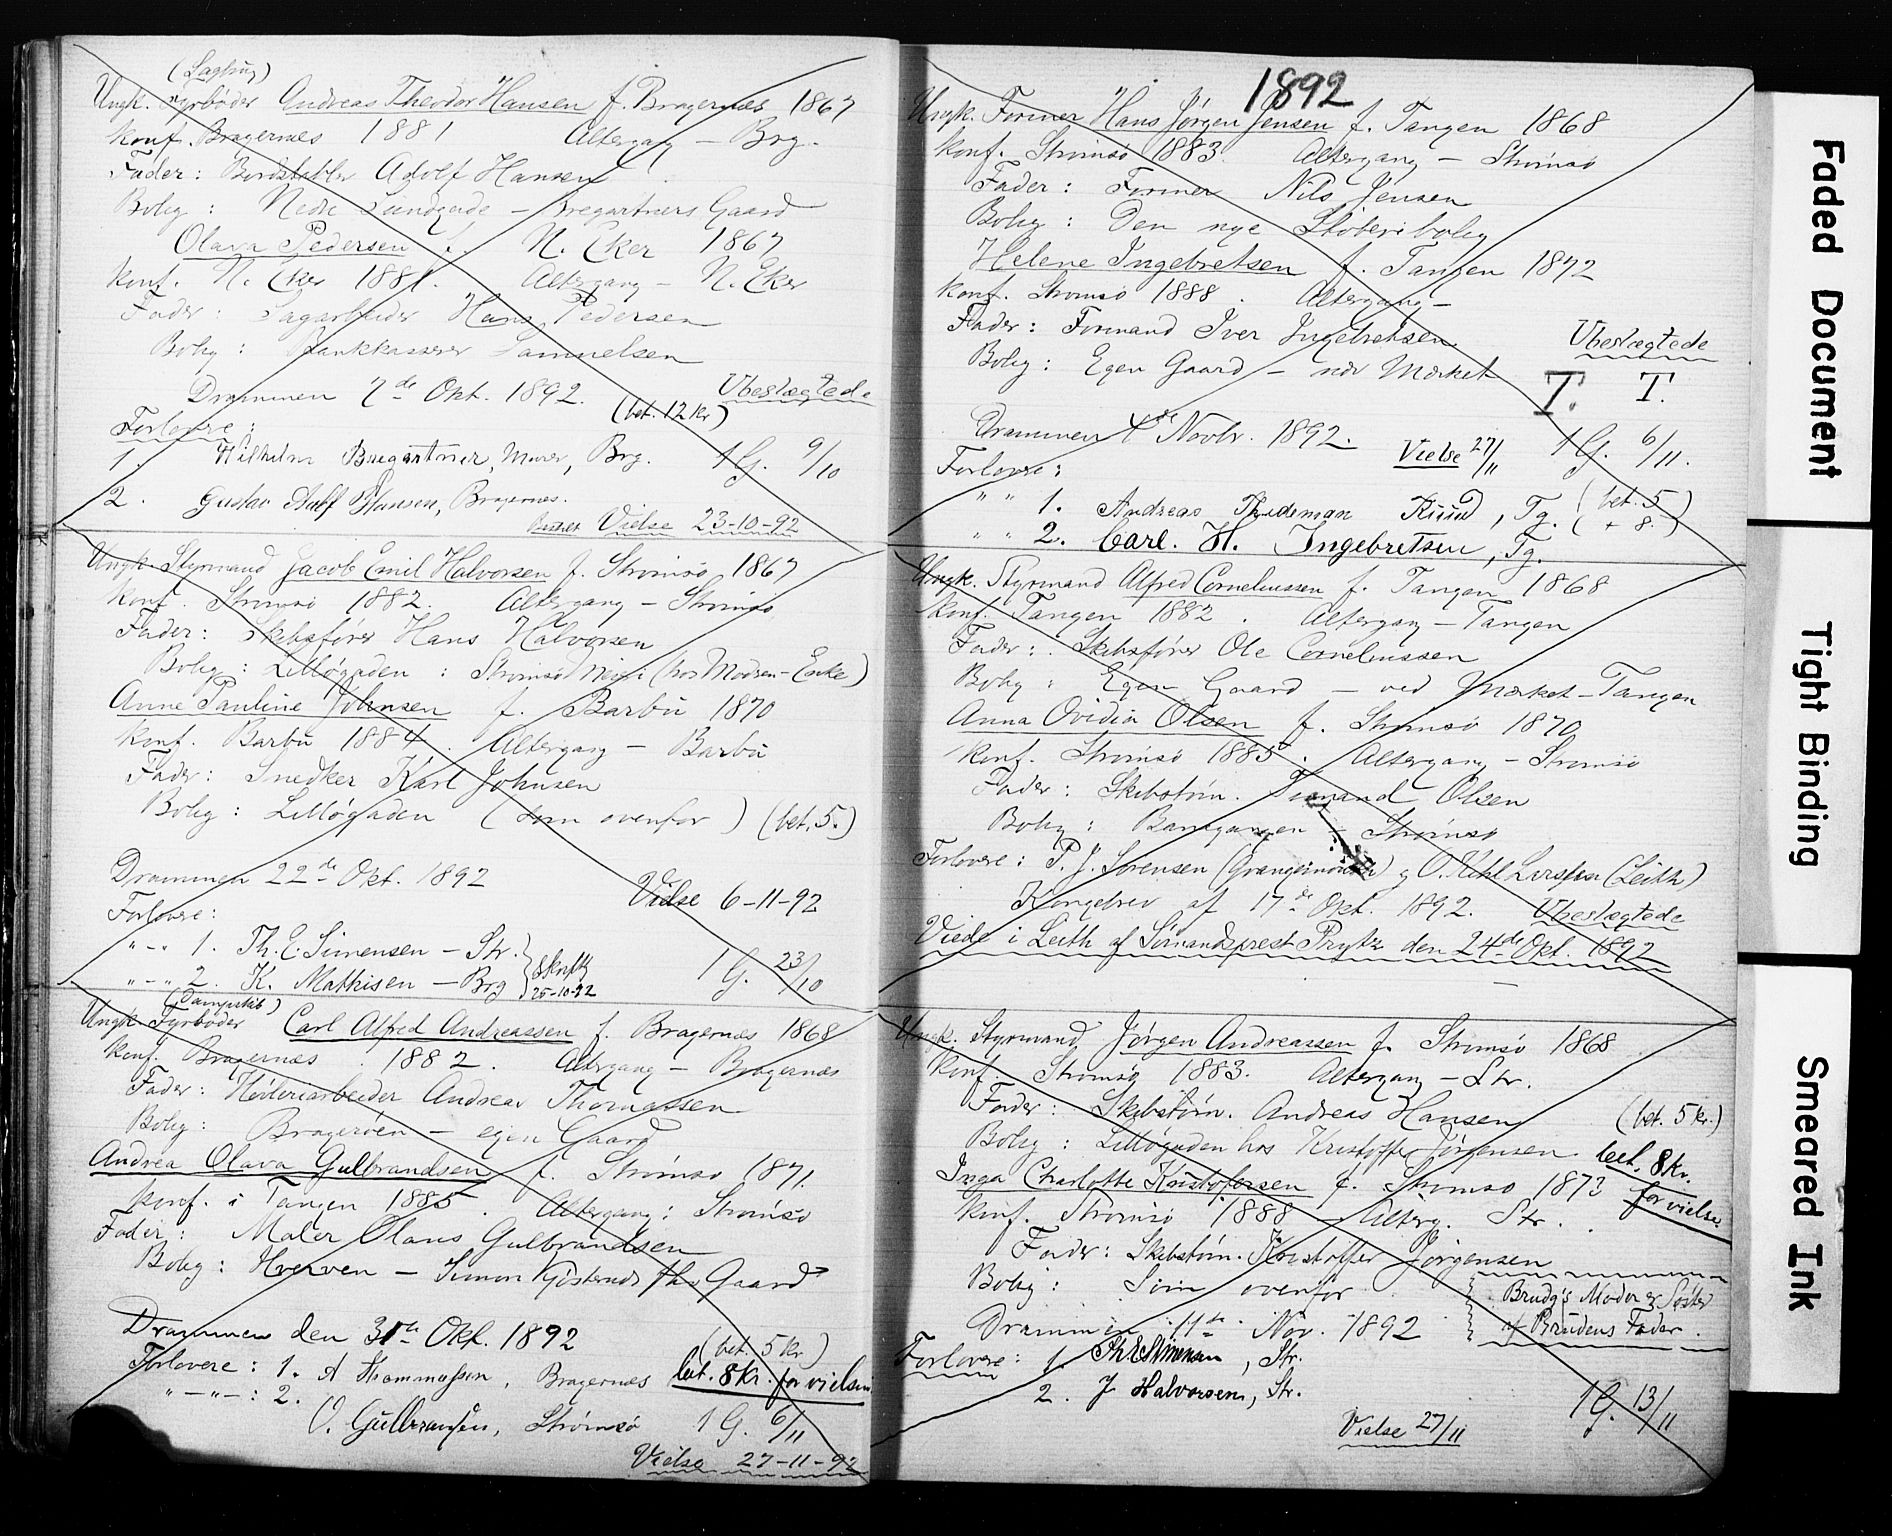 (Lagbrug)
Ungk. Fyrbøder Andreas Theodor Hansen f. Bragernæs 1867
konf. Bragernæs 1881 Altergang – Brg.
Fader: Bordstabler Adolf Hansen
Bolig: Nedre Sundgade – Bregartners Gaard
Olava Pedersen f. N. Eker 1867
konf. N. Eker 1881. Altergang – N. Eker
Fader: Sagarbeider Hans Pedersen
Bolig: Bankkasserer Samuelsen
Drammen 7de Okt. 1892. Ubeslægtede
Forlovere: (bet. 12 kr)
1. Wilhelm Bregartner, Murer, Brg. 1 G. 9/10
2. Gustav Adolf Hansen, Bragernes.
Vielse 23-10-92
Ungk. Styrmand Jacob Emil Halvorsen f. Strømsø 1867
konf. Strømsø 1882. Altergang – Strømsø
Fader: Skibsfører Hans Halvorsen
Bolig: Lilløgaden : Strømsø (hos Modren – Enke)
Anne Pauline Johnsen f. Barbu 1870
konf. Barbu 1884. Altergang – Barbu
Fader: Snedker Karl Johnsen
Bolig: Lilløgaden (som ovenfor) (bet. 5.)
Drammen 22de Okt. 1892
Forlovere: Vielse 6-11-92
"–" 1. Th. E. Simensen – Str.
"–" 2. K. Mathisen – Brg } skriftl 25-10-92 1 G. 23/10
(Dampskib)
Ungk. Fyrbøder Carl Alfred Andreassen f. Bragernæs 1868
konf. Bragernæs 1882. Altergang – Bragernæs
Fader: Høvleriarbeider Andreas Thomassen
Bolig: Bragerøen – egen Gaard
Andrea Olava Gulbrandsen f. Strømsø 1871.
konf. i Tangen 1885. Altergang: Strømsø
Fader: Maler Olaus Gulbrandsen
Bolig: Hverven – Simon Gaard
Drammen den 31te Okt. 1892 (bet. 5 kr)
Forlovere: 1. A Thommassen, Bragernæs bet. 8 kr. for vielsen
"–"–: 2. O. Gulbransen, Strømsø 1 G. 6/11
Vielse 27-11-92
1892
Ungk. Former Hans Jørgen Jensen f. Tangen 1868
konf. Strømsø 1883. Altergang – Strømsø
Fader: Former Nils Jensen
Bolig: Den nye Støberibolig
Helene Ingebretsen f. Tangen 1872
konf. Strømsø 1888. Altergang –
Fader: Formand Iver Ingebretsen Ubeslægtede
Bolig: Egen Gaard – nær Market T. T.
Drammen 4de Novbr. 1892. Vielse 27/11 1 G. 6/11.
Forlovere:
" " 1. Andreas Thideman Ruud, Tg. (bet. 5)
" " 2. Carl. H. Ingebretsen, Tg. (+ 8.)
Ungk. Styrmand Alfred Corneliussen f. Tangen 1868
konf. Tangen 1882. Altergang – Tangen
Fader: Skibsfører Ole Corneliussen
Bolig: Egen Gaard – ved Market – Tangen
Anna Ovidia Olsen f. Strømsø 1870
konf. Strømsø 1885. Altergang – Strømsø
Fader: Skibstøm. Olsen
Bolig: – Strømsø
Forlovere: P. J. Sørensen (Grangemouth) g O. Larssen (Leith)
Kongebrev af 17de Okt. 1892. Ubeslægtede
Viede i Leith af Sømandsprest Prytz den 24de Okt. 1892
Ungk. Styrmand Jørgen Andreassen f. Strømsø 1868
konf. Strømsø 1883. Altergang – Str.
Fader: Skibstøm. Andreas Hansen (bet. 5 kr.)
Bolig: Lilløgaden hos Kristoffer Jørgensen bet. 8 kr.
Inga Charlotte Kristofersen f. Strømsø 1873 for vielse
konf. Strømsø 1888 – Alterg. Str.
Fader: Skibstøm. Kristoffer Jørgensen
Bolig: Som ovenfor Brudg's Moder er Søster
Drammen 11te Nov. 1892 af Brudens Fader.
Forlovere: 1. Th E Simensen, Str.
2. J Halvorsen, Str. 1 G. 13/11
Vielse 27/11
Faded Document
Tight Binding
Smeared Ink